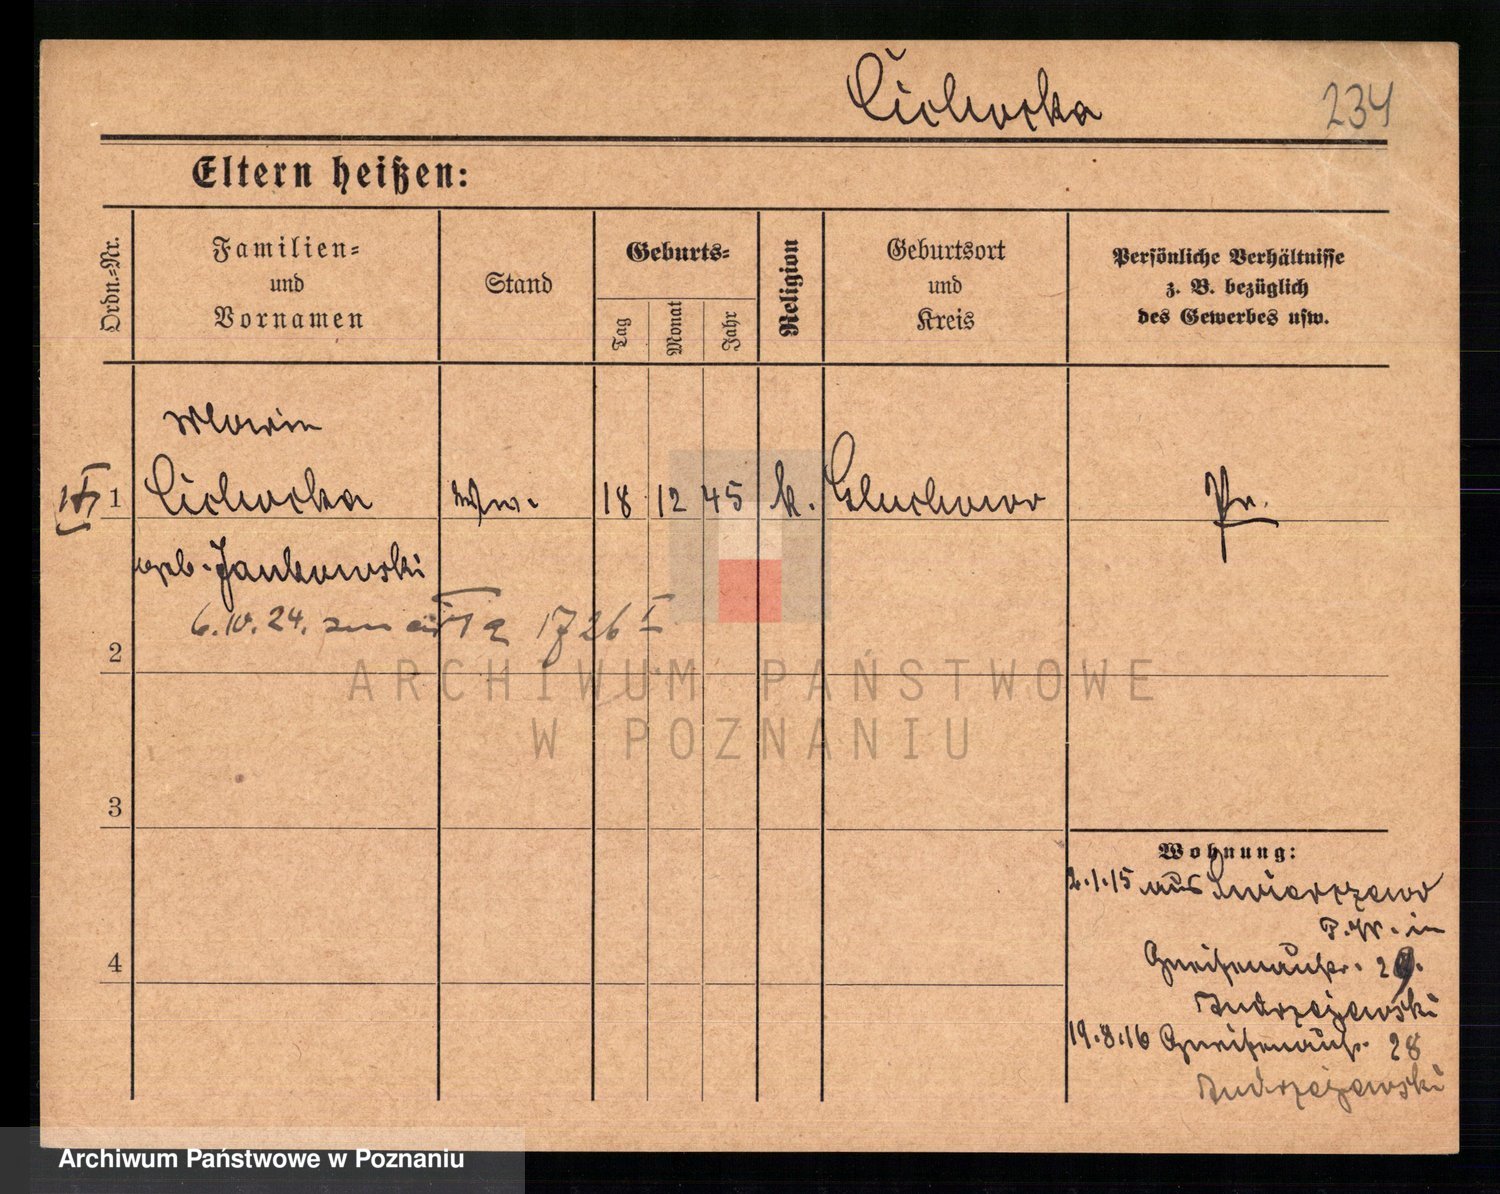 Cichocka 234
Eltern heißen:
Ordn.=Nr.
Familien=
und
Vornamen
Stand
Geburts=
Tag
Monat
Jahr
Religion
Geburtsort
und
Kreis
Persönliche Verhältnisse
z. B. bezüglich
des Gewerbes usw.
Marie
1 Cichocka Ww. 18 12 45 k. Gluchowo Pr.
geb. Jankowski
6.10.24.
2
3
4
Wohnung:
2.1.15 aus Swierczewo
P.W. in
Gneisenaustr. 29.
Andrzejewski
19.8.16 Gneisenaustr. 28
Andrzejewski
ARCHIWUM PAŃSTWOWE
W POZNANIU
Archiwum Państwowe w Poznaniu